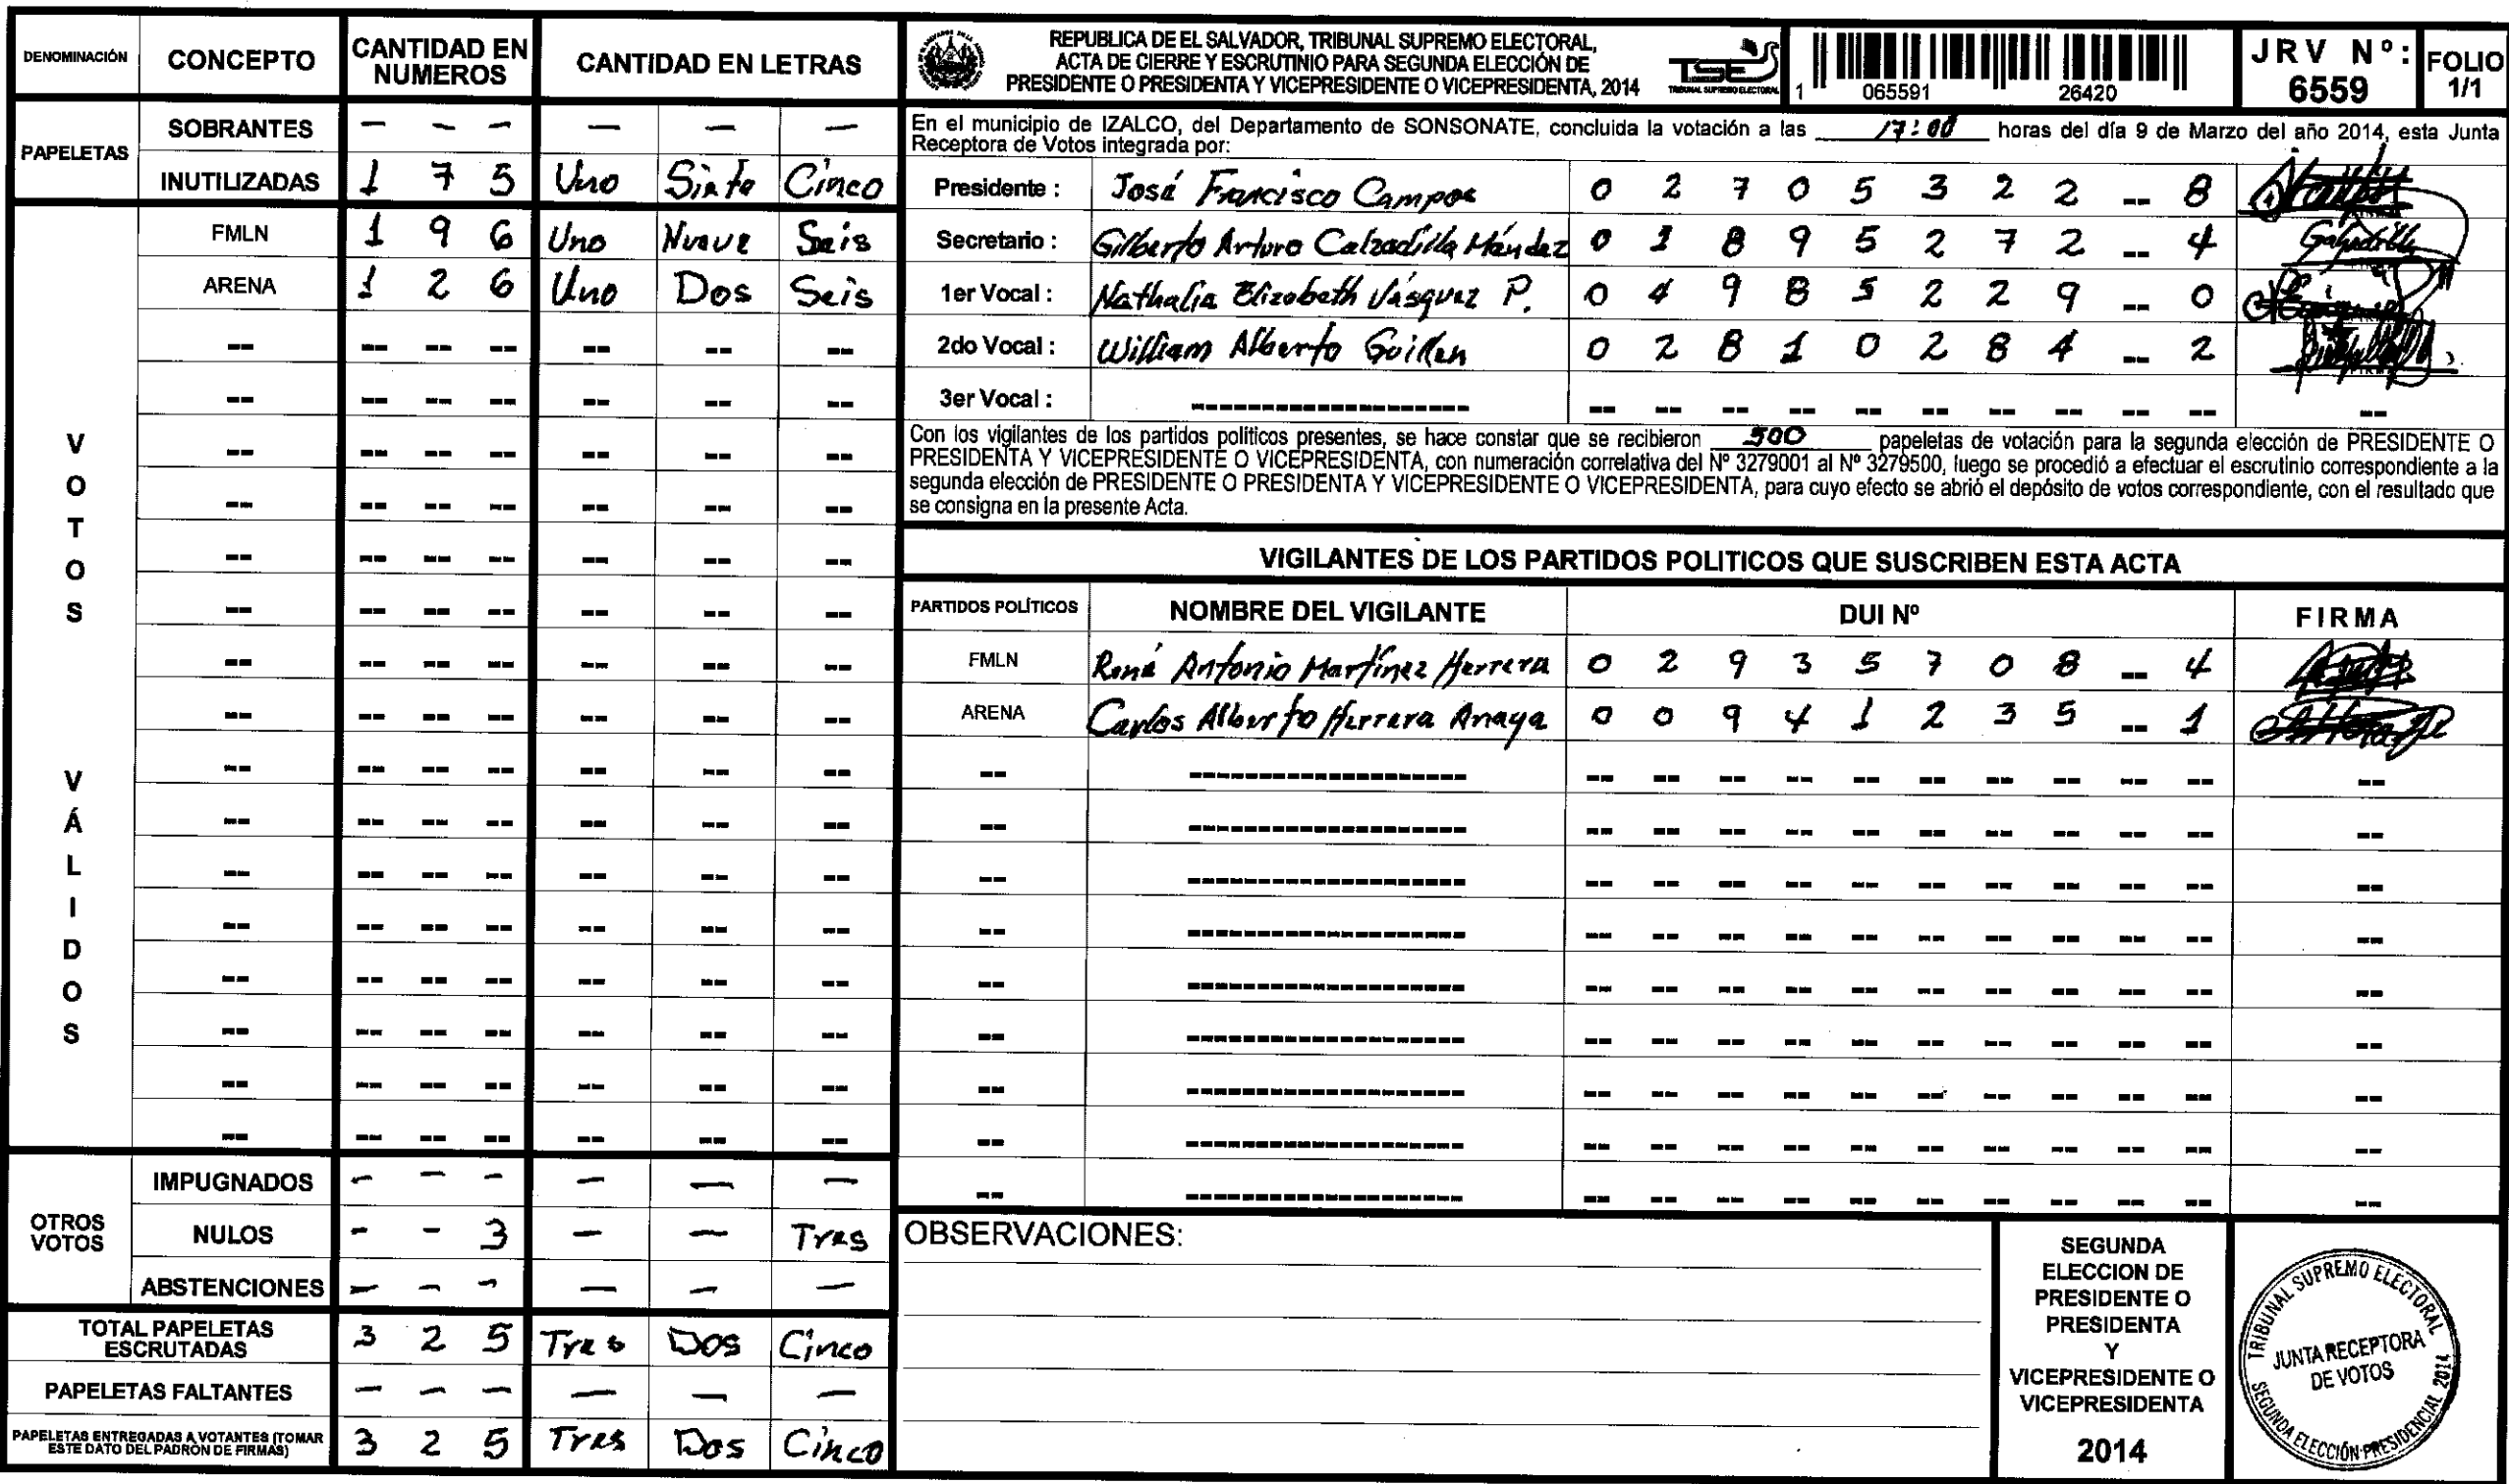 DENOMINACIÓN CONCEPTO CANTIDAD EN NUMEROS CANTIDAD EN LETRAS
PAPELETAS
SOBRANTES — — — — — —
INUTILIZADAS 1 7 5 Uno Siete Cinco
VOTOS VÁLIDOS
FMLN 1 9 6 Uno Nueve Seis
ARENA 1 2 6 Uno Dos Seis
OTROS VOTOS
IMPUGNADOS — — — — — —
NULOS - - 3 — — Tres
ABSTENCIONES — — — — — —
TOTAL PAPELETAS ESCRUTADAS 3 2 5 Tres Dos Cinco
PAPELETAS FALTANTES — — — — — —
PAPELETAS ENTREGADAS A VOTANTES (TOMAR ESTE DATO DEL PADRÓN DE FIRMAS) 3 2 5 Tres Dos Cinco
REPUBLICA DE EL SALVADOR, TRIBUNAL SUPREMO ELECTORAL,
ACTA DE CIERRE Y ESCRUTINIO PARA SEGUNDA ELECCIÓN DE
PRESIDENTE O PRESIDENTA Y VICEPRESIDENTE O VICEPRESIDENTA, 2014
TSE
TRIBUNAL SUPREMO ELECTORAL
1 065591 26420
JRV Nº: 6559
FOLIO 1/1
En el municipio de IZALCO, del Departamento de SONSONATE, concluida la votación a las 17:00 horas del día 9 de Marzo del año 2014, esta Junta
Receptora de Votos integrada por:
Presidente : José Francisco Campos 0 2 7 0 5 3 2 2 -- 8
Secretario : Gilberto Arturo Calzadilla Méndez 0 1 8 9 5 2 7 2 -- 4
1er Vocal : Nathalia Elizabeth Vásquez P. 0 4 9 8 5 2 2 9 -- 0
2do Vocal : William Alberto Guillen 0 2 8 1 0 2 8 4 -- 2
3er Vocal : --------------------
Con los vigilantes de los partidos políticos presentes, se hace constar que se recibieron 500 papeletas de votación para la segunda elección de PRESIDENTE O
PRESIDENTA Y VICEPRESIDENTE O VICEPRESIDENTA, con numeración correlativa del Nº 3279001 al Nº 3279500, luego se procedió a efectuar el escrutinio correspondiente a la
segunda elección de PRESIDENTE O PRESIDENTA Y VICEPRESIDENTE O VICEPRESIDENTA, para cuyo efecto se abrió el depósito de votos correspondiente, con el resultado que
se consigna en la presente Acta.
VIGILANTES DE LOS PARTIDOS POLITICOS QUE SUSCRIBEN ESTA ACTA
PARTIDOS POLÍTICOS NOMBRE DEL VIGILANTE DUI Nº FIRMA
FMLN René Antonio Martínez Herrera 0 2 9 3 5 7 0 8 -- 4
ARENA Carlos Alberto Herrera Anaya 0 0 9 4 1 2 3 5 -- 1
OBSERVACIONES:
SEGUNDA
ELECCION DE
PRESIDENTE O
PRESIDENTA
Y
VICEPRESIDENTE O
VICEPRESIDENTA
2014
TRIBUNAL SUPREMO ELECTORAL
JUNTA RECEPTORA
DE VOTOS
SEGUNDA ELECCIÓN PRESIDENCIAL 2014